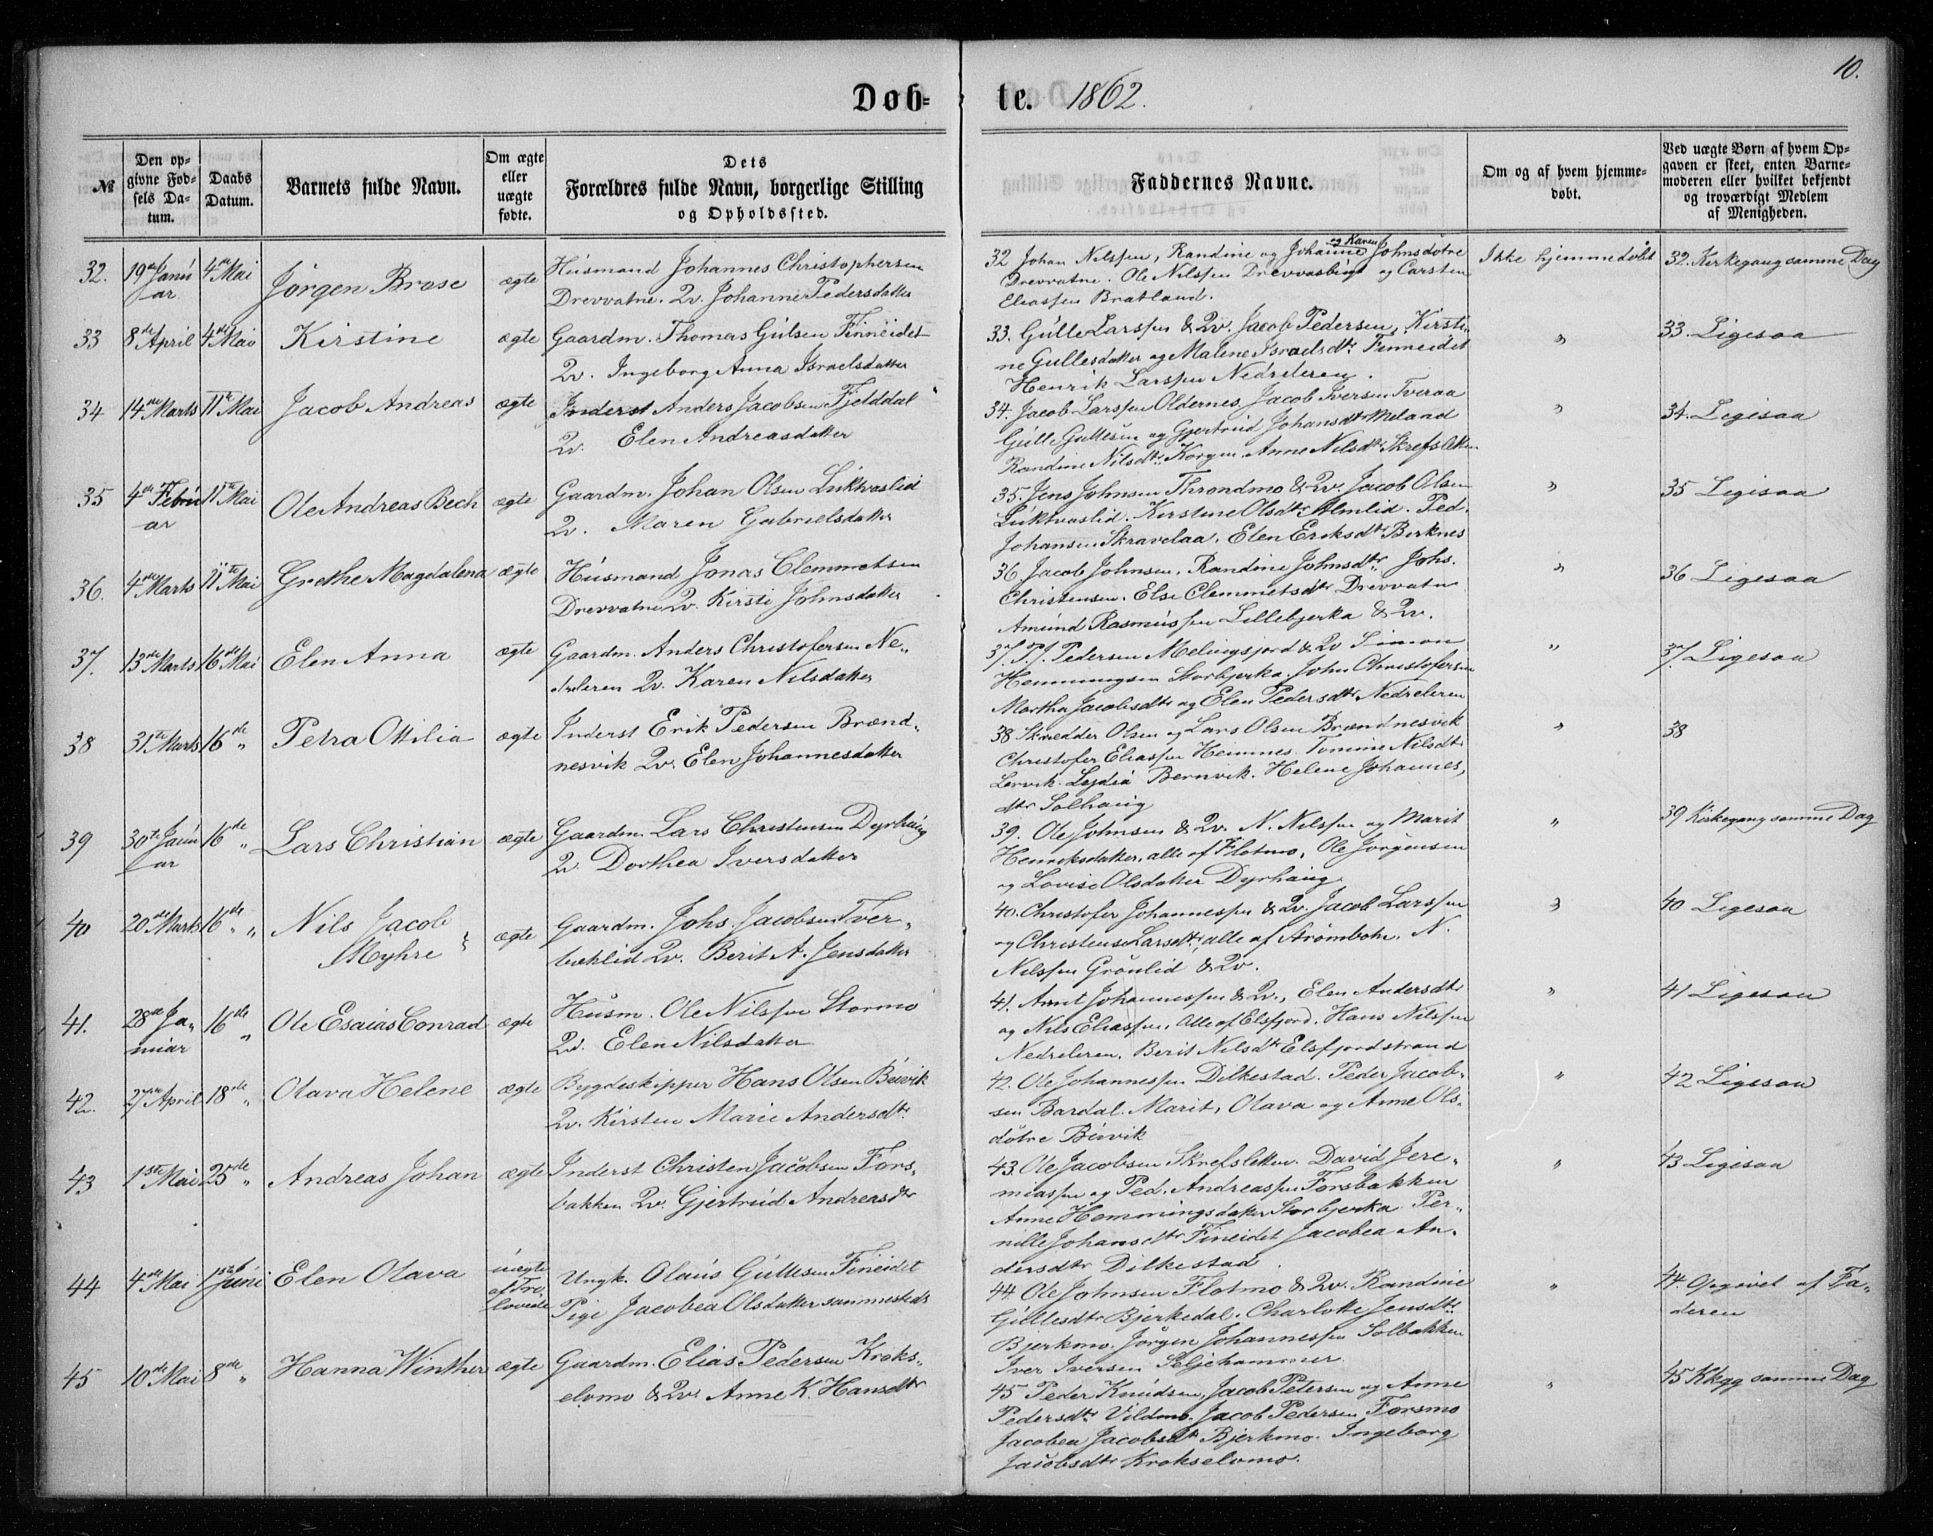 10.
Døb-te. 1862.
№
Den opgivne Fødsels Datum.
Daabs Datum.
Barnets fulde Navn.
Om ægte eller uægte fødte.
Dets Forældres fulde Navn, borgerlige Stilling og Opholdssted.
Faddernes Navne.
Om og af hvem hjemmedøbt.
Ved uægte Børn af hvem Opgaven er skeet, enten Barnemoderen eller hvilket bekjendt og troværdigt Medlem af Menigheden.
32. 19de Janu 4de Mai Jørgen Brose ægte Huusmand Johannes Christophersen
ar Drevvatne. Qv. Johanne Pedersdatter
32 Johan Nilssen, Randine og Johanne og Karen Johnsdøtre
Drevvatne. Ole Nilssen Drevvasbygt og Carsten
Eliassen Bratland.
Ikke hjemmedøbt
32. Kirkegang samme Dag
33 8de April 4de Mai Kirstine ægte Gaardm. Thomas Gulsen Finneidet
Qv. Ingeborg Anna Israelsdatter
33. Gulle Larssen & Qv. Jacob Pedersen, Kirsti-
ne Gullesdatter og Malene Israelsdtr Finneidet
Henrik Larssen Nedreleren.
"
33. Ligesaa
34 14de Marts 11te Mai Jacob Andreas ægte Inderst Anders Jacobsen Fjelddal
Qv. Elen Andreasdatter
34. Jacob Larssen Oldernes, Jacob Iversen Tveraa
Gulle Gullesen og Gjertrud Johansdtr Melaad
Randine Nilsdtr Korgen. Anne Nilsdtr Skrefsletten
"
34. Ligesaa
35 4de Febru 11te Mai Ole Andreas Bech ægte Gaardm. Johan Olsen Luktvaslid
ar Qv. Maren Gabrielsdatter
35. Jens Johnsen Throndmo & Qv. Jacob Olsen
Luktvaslid. Kirstine Olsdtr Almlid. Ped.
Johansen Skravelaa. Elen Eriksdtr Berknes
"
35 Ligesaa
36. 4de Marts 11te Mai Grethe Magdalena ægte Huusmand Jonas Clemmetsen
Drevvatne Qv. Kirsti Johnsdatter
36 Jacob Johnsen. Randine Johnsdtr Johs.
Christensen. Else Clemmetsdtr Drevvatn
Amund Rasmussen Lillebjerka & Qv.
"
36 Ligesaa
37. 13de Marts 16de Mai Elen Anna ægte Gaardm. Anders Christofersen Ne-
dreleren Qv. Karen Nilsdatter
37. P. J. Pedersen Melingsjord & Qv Simon
Hemmingsen Storbjerka. John Christofersen
Martha Jacobsdtr og Elen Pedersdtr Nedreleren
"
37. Ligesaa
38 31te Marts 16de " Petra Ottilia ægte Inderst Erik Pedersen Brænd-
nesvik Qv. Elen Johannesdatter
38 Skrædder Olsen og Lars Olsen Brændnesvik
Christofer Eliassen Hemnes. Tomine Nilsdtr
Lervik. Lydia Bernvik. Helene Johannes,
dtr Solhaug
"
38
39 30te Janu 16de " Lars Christian ægte Gaardm. Lars Christensen Dyrhaug
ar Qv. Dorthea Iversdatter
39. Ole Johnsen & Qv. N. Nilssen og Marit
Henriksdatter, alle af Flotmo, Ole Jørgensen
og Lovise Olsdatter Dyrhaug
"
39 Kirkegang samme Dag
40 20de Marts 16de " Nils Jacob
Myhre ægte Gaardm. Johs. Jacobsen Tver-
bæklid Qv. Berit A. Jensdatter
40. Christofer Johannessen & Qv. Jacob Larssen
og Christense Larsdtr, alle af Strømbotn. N.
Nilssen Grønlid & Qv.
"
40 Ligesaa
41. 28de Ja- 16de " Ole Esaias Conrad ægte Huusm. Ole Nilssen Stormo
nuar Qv. Elen Nilsdatter
41. Arnt Johannessen & Qv., Elen Andersdtr
og Nils Eliassen, Alle af Elsfjord. Hans Nilssen
Nedreleren. Berit Nilsdtr Elsfjordstrand
"
41 Ligesaa
42. 27de April 18de " Olava Helene ægte Bygdeskipper Hans Olsen Buvik
Qv. Kirsten Marie Andersdtr
42. Ole Johannessen Dilkestad. Peder Jacob-
sen Bardal. Marit, Olava og Anne Ols-
døtre Buvik
"
42 Ligesaa
43 1ste Mai 25de " Andreas Johan ægte Inderst Christen Jacobsen Fors-
bakken Qv. Gjertrud Andreasdtr
43. Ole Jacobsen Skrefsletten. David Jere-
miassen og Ped. Andreassen Forsbakken
Anne Hemmingsdatter Storbjerka Per-
nille Johansdtr Fineidet Jacobea An-
dersdtr Dilkestad.
"
43 Ligesaa
44 4de Mai 1ste Juni Elen Olava uægte
af Tro-
lovede Ungk. Olaus Gullesen Fineidet
Pige Jacobea Olsdatter sammesteds
44 Ole Johnsen Flotmo & Qv. Randine
Gullesdtr Bjerkedal. Charlotte Jensdtr
Bjerkmo. Jørgen Johannessen Solbakken
Iver Iversen Seljehammer
"
44. Opgivet af Fa-
deren
45 10de Mai 8de " Hanna Winther ægte Gaardm. Elias Pedersen Kroks-
elvmo & Qv. Anne K. Hansdtr
45 Peder Knudsen, Jacob Petersen og Anne
Pedersdtr Vildmo. Jacob Pedersen Forsmo
Jacobea Jacobsdtr Bjerkmo. Ingeborg
Jacobsdtr Krokselvmo.
"
45 Kkgg samme Dag